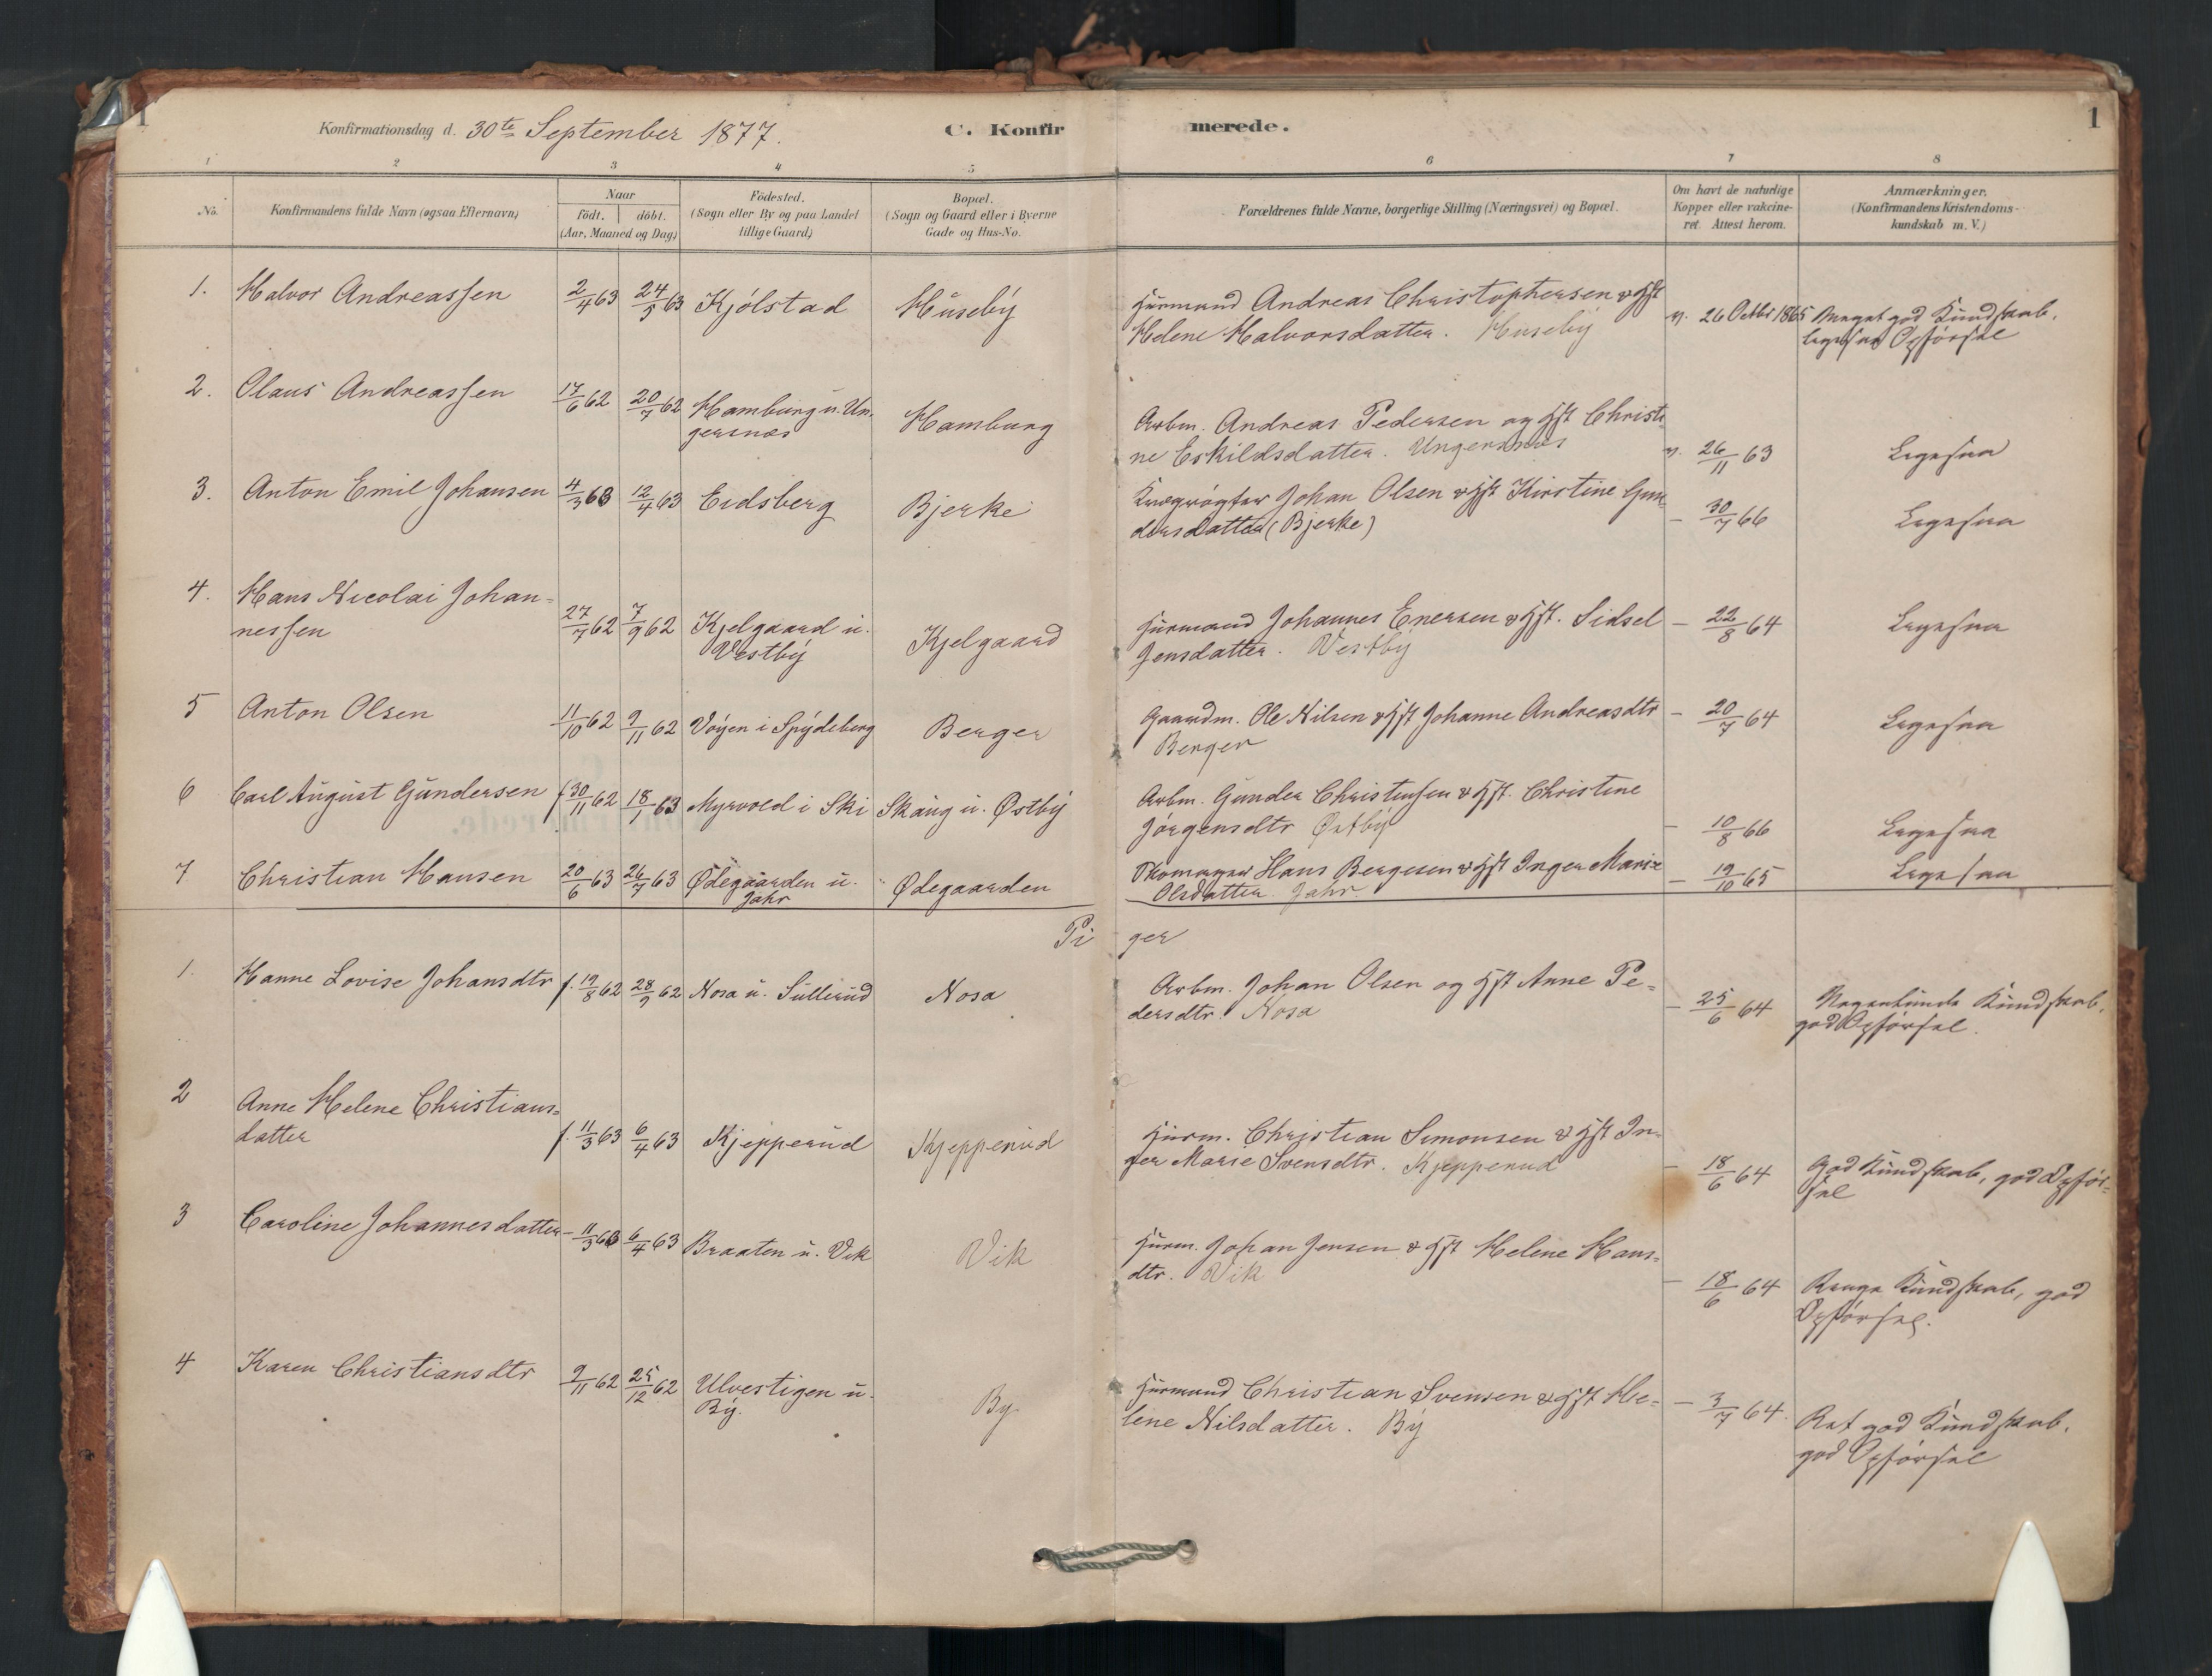 1
Konfirmationsdag d. 30te September 1877.
C. Konfirmerede.
1
1 2 3 4 5 6 7 8
No.
Konfirmandens fulde Navn (ogsaa Efternavn)
Naar
födt. döbt.
(Aar, Maaned og Dag)
Födested.
(Sogn eller By og paa Landet
tillige Gaard)
Bopæl.
(Sogn og Gaard eller i Byerne
Gade og Hus-No.
Forældrenes fulde Navne, borgerlige Stilling (Næringsvei) og Bopæl.
Om havt de naturlige
Kopper eller vakcine-
ret. Attest herom.
Anmærkninger.
(Konfirmandens Kristendoms-
kundskab m.V.)
1. Halvor Andreassen 2/4 63 24/5 63 Kjölstad Huseby
Husmand Andreas Christophersen & Hst
Helene Halvorsdatter. Huseby
v. 26 Octbr 1865
Meget god Kundskab.
Ligesaa Opförsel
2. Olaus Andreassen 17/6 62 20/7 62 Hamburg u. Un-
gersnæs
Hamburg
Arbm. Andreas Pedersen og Hst Christi-
ne Eskildsdatter. Ungersnæs
v. 26/11 63 Ligesaa
3. Anton Emil Johansen 4/3 63 12/4 63 Eidsberg Bjerke
Johan Olsen & Hst Kirstine Gun-
dersdatter (Bjerke)
- 30/7 66 Ligesaa
4. Hans Nicolai Johan=
nessen
27/7 62 7/9 62 Kjelgaard u.
Vestby
Kjelgaard
Husmand Johannes Enersen & Hst. Sidsel
Jensdatter. Vestby
- 22/8 64 Ligesaa
5 Anton Olsen 11/10 62 9/11 62 Vöyen i Spydeberg Berger
Gaardm. Ole Nilsen & Hst Johanne Andreasdtr
Berger
- 20/7 64 Ligesaa
6 Carl August Gundersen f 30/11 62 18/1 63 Myrvold i Ski Skaug u. Østby
Arbm. Gunder Christensen & Hst. Christine
Jörgensdtr Østby
- 10/8 66 Ligesaa
7 Christian Hansen 20/6 63 26/7 63 Ødegaarden u.
Jahr
Ødegaarden
Skomager Hans Bergesen & Hst Inger Marie
Olsdatter. Jahr.
- 19/10 65 Ligesaa
Piger
1. Hanne Lovise Johansdtr f. 19/8 62 28/9 62 Nosa u. Sullerud Nosa
Arbm. Johan Olsen og Hst Anne Pe=
dersdtr. Nosa
- 25/6 64
Kundskab,
god Opförsel.
2 Anne Helene Christians=
datter
f. 11/3 63 6/4 63 Kjepperud Kjepperud
Husm. Christian Simonsen & Hst In-
ger Marie Svensdtr. Kjepperud
- 18/6 64
God Kundskab, god Opför=
sel
3 Caroline Johannesdatter - 11/3 63 6/4 63 Braaten u. Vik Vik
Husm. Johan Jensen & Hst Helene Hans=
dtr. Vik
- 18/6 64
Kundskab, god
Opförsel.
4 Karen Christiansdtr 9/11 62 25/12 62 Ulvestigen u.
By.
By
Husmand Christian Svensen & Hst He=
lene Nilsdatter. By
- 3/7 64.
Ret god Kundskab.
god Opförsel